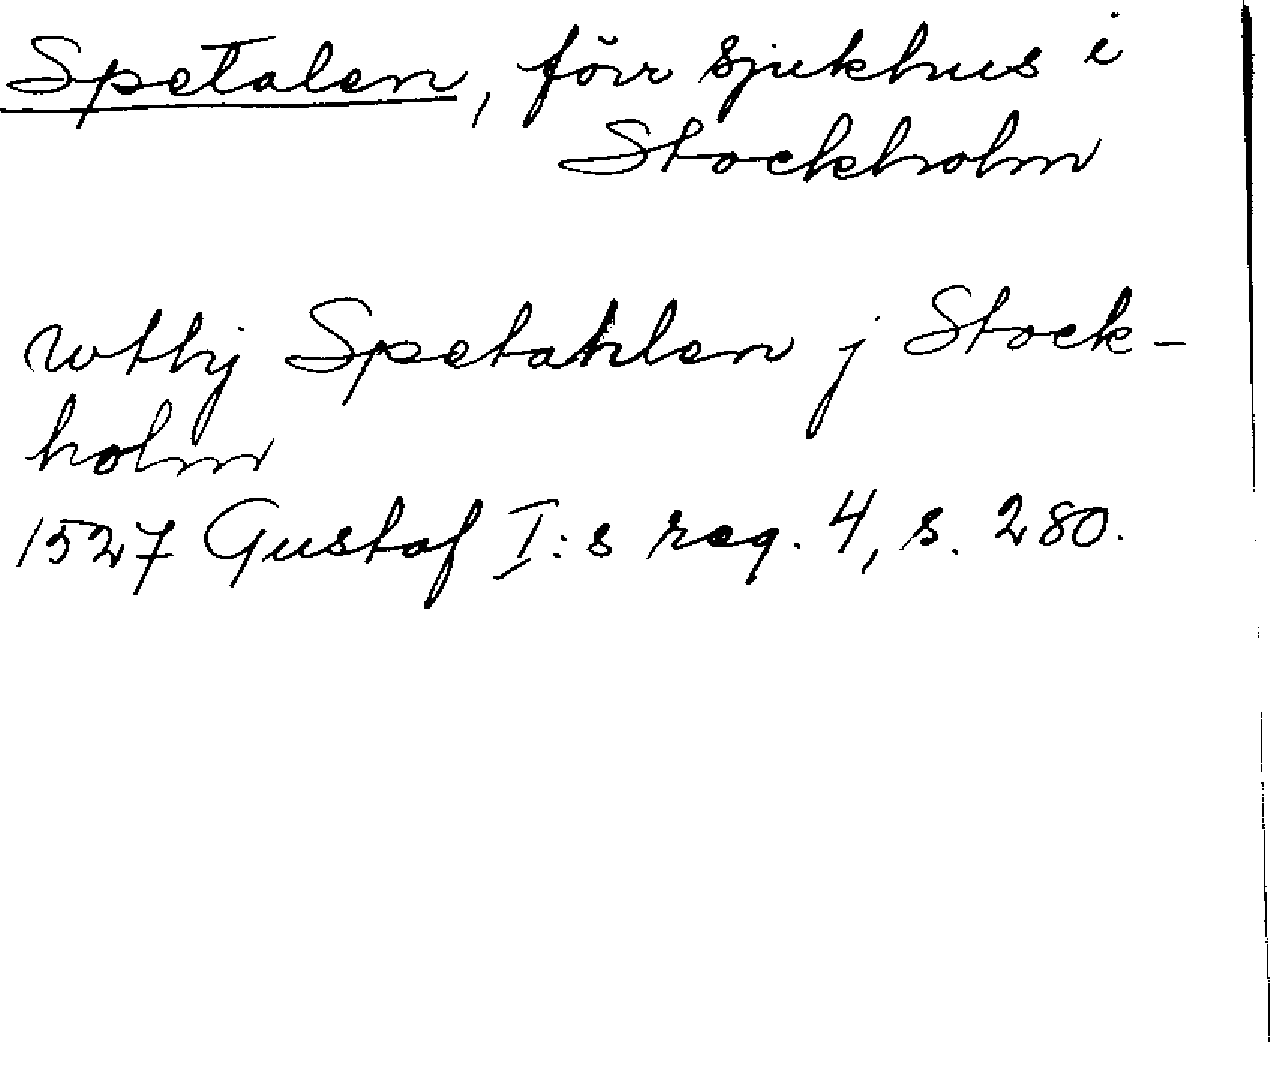 Spetalen, förr sjukhus i
Stockholm
wthj Spetahlen j Stock-
holm
1527 Gustaf I:s reg. 4, s. 280.